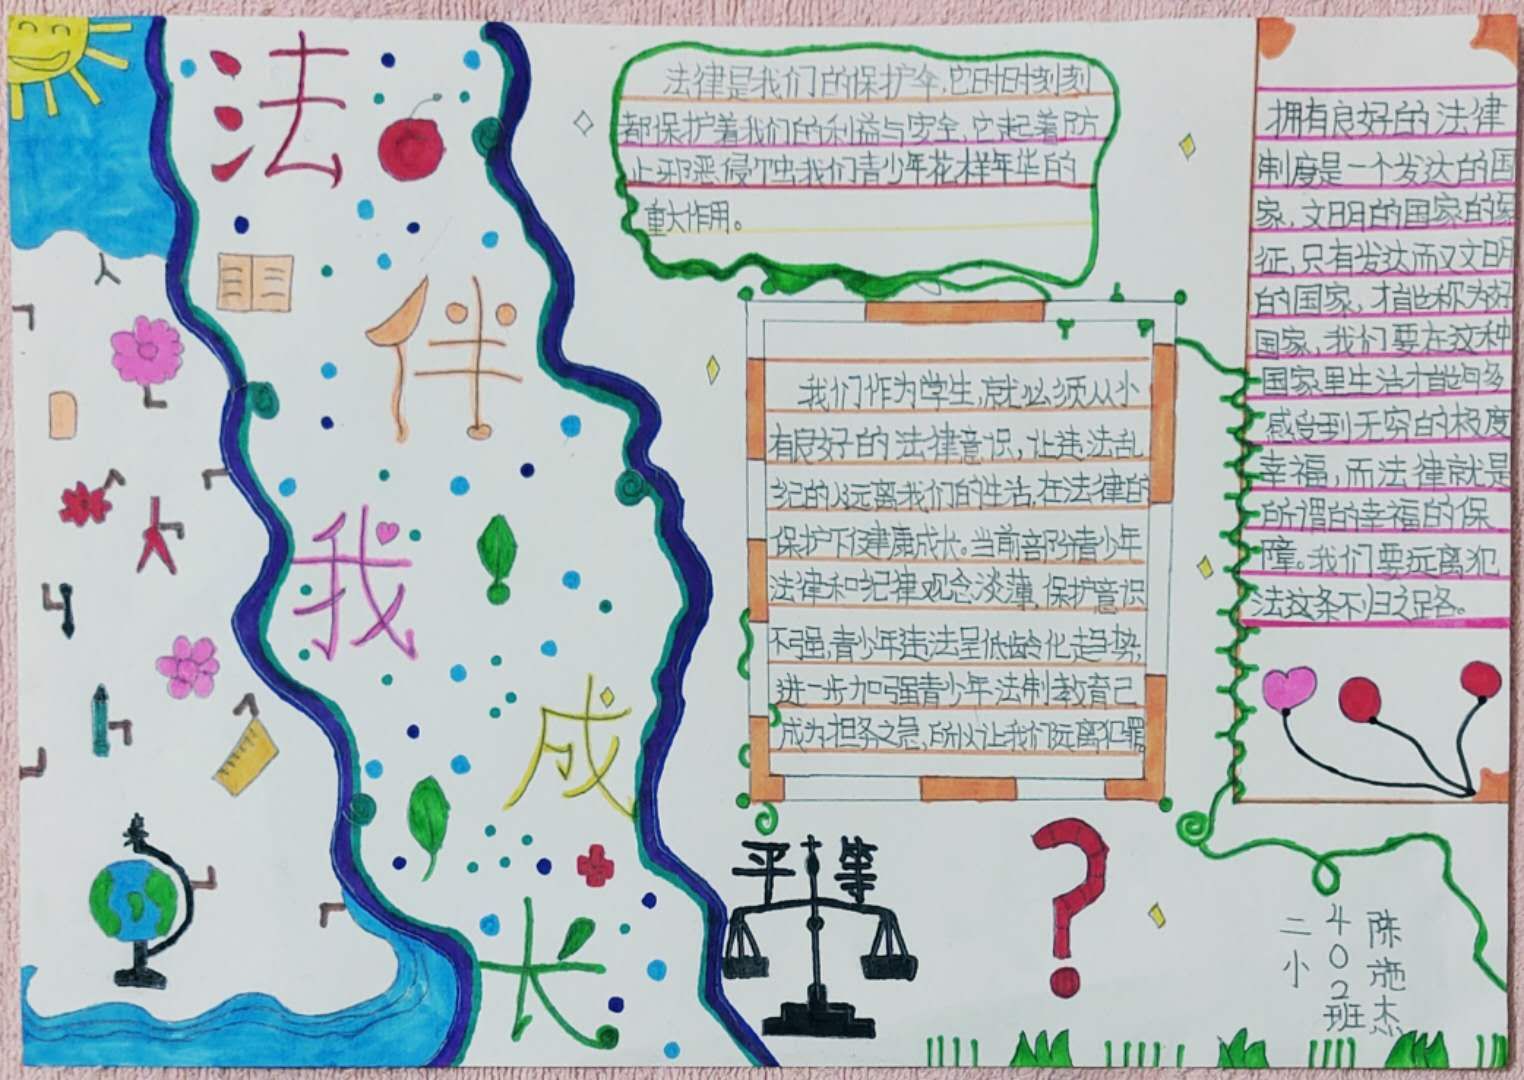 法伴我成长
法律是我们的保护伞,它时时刻刻
都保护着我们的利益与安全,它起着防
止邪恶侵蚀我们青少年花样年华的
重大作用。
我们作为学生,就必须从小
有良好的法律意识,让违法乱
纪的人远离我们的生活,在法律的
保护下健康成长。当前部份青少年
法律和纪律观念淡薄,保护意识
不强,青少年违法呈低龄化趋势,
进一步加强青少年法制教育己
成为担务之急,所以让我们远离犯罪
拥有良好的法律
制度是一个发达的国
家,文明的国家的象
征,只有发达而又文明
的国家,才能称为好
国家,我们要在这种
国家里生活才能够多
感受到无穷的极度
幸福,而法律就是
所谓的幸福的保
障。我们要远离犯
法这条不归之路。
平等
?
二小
402班
陈施杰